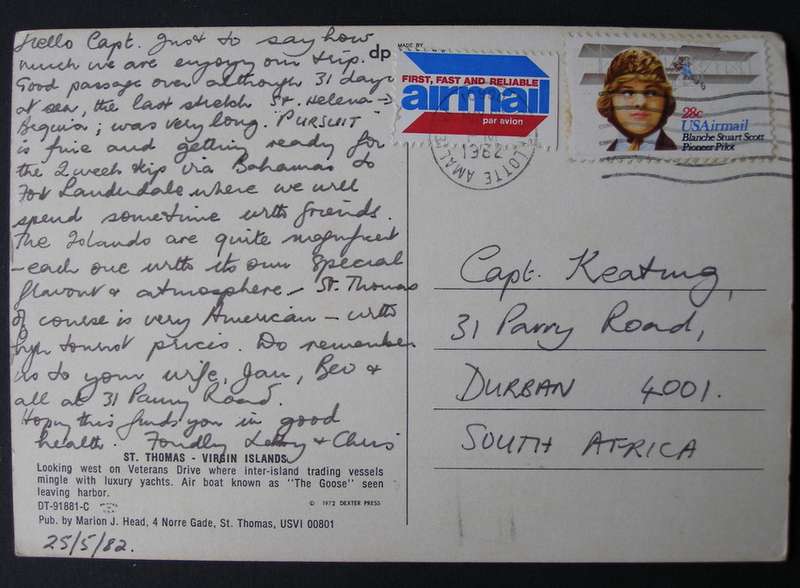 Hello Capt. Just to say how
much we are enjoyg our trip.
Good passage over although 31 days
at sea, the last stretch St. Helena →
Bequia; was very long. "PURSUIT"
is fine and getting ready for
the 2 week trip via Bahamas to
Fort Lauderdale where we will
spend sometime with friends.
The Islands are quite magnificent
- each one with its own special
flavour & atmosphere - St. Thomas
of course is very American - with
high tourist prices. Do remember
us to your wife, Jan, Bev &
all at 31 Parry Road.
Hoping this finds you in good
health. Fondly & Chris
ST. THOMAS - VIRGIN ISLANDS
Looking west on Veterans Drive where inter-island trading vessels
mingle with luxury yachts. Air boat known as "The Goose" seen
leaving harbor.
DT-91881-C
© 1972 DEXTER PRESS
Pub. by Marion J. Head, 4 Norre Gade, St. Thomas, USVI 00801
25/5/82.
dp
MADE BY
FIRST, FAST AND RELIABLE
airmail
par avion
LOTTE AMAL
28c
USAirmail
Blanche Stuart Scott
Pioneer Pilot
Capt. Keating,
31 Parry Road,
DURBAN 4001.
SOUTH AFRICA